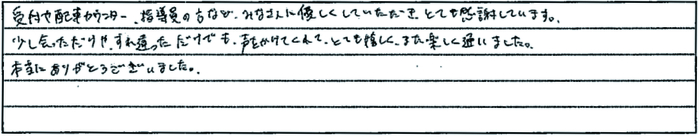 受付や配車カウンター、指導員の方など、みなさんに優しくしていただき、とても感謝しています。
少し会っただけや、すれ違っただけでも、声をかけてくれて、とても嬉しく、また楽しく通いました。
本当にありがとうございました。